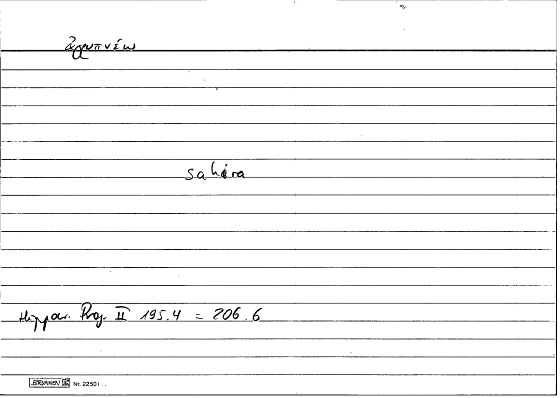 ἀγρυπνέω
sahira
Hippocr. Prog. II 195.4 = 206.6
BRUNNEN Nr. 22501